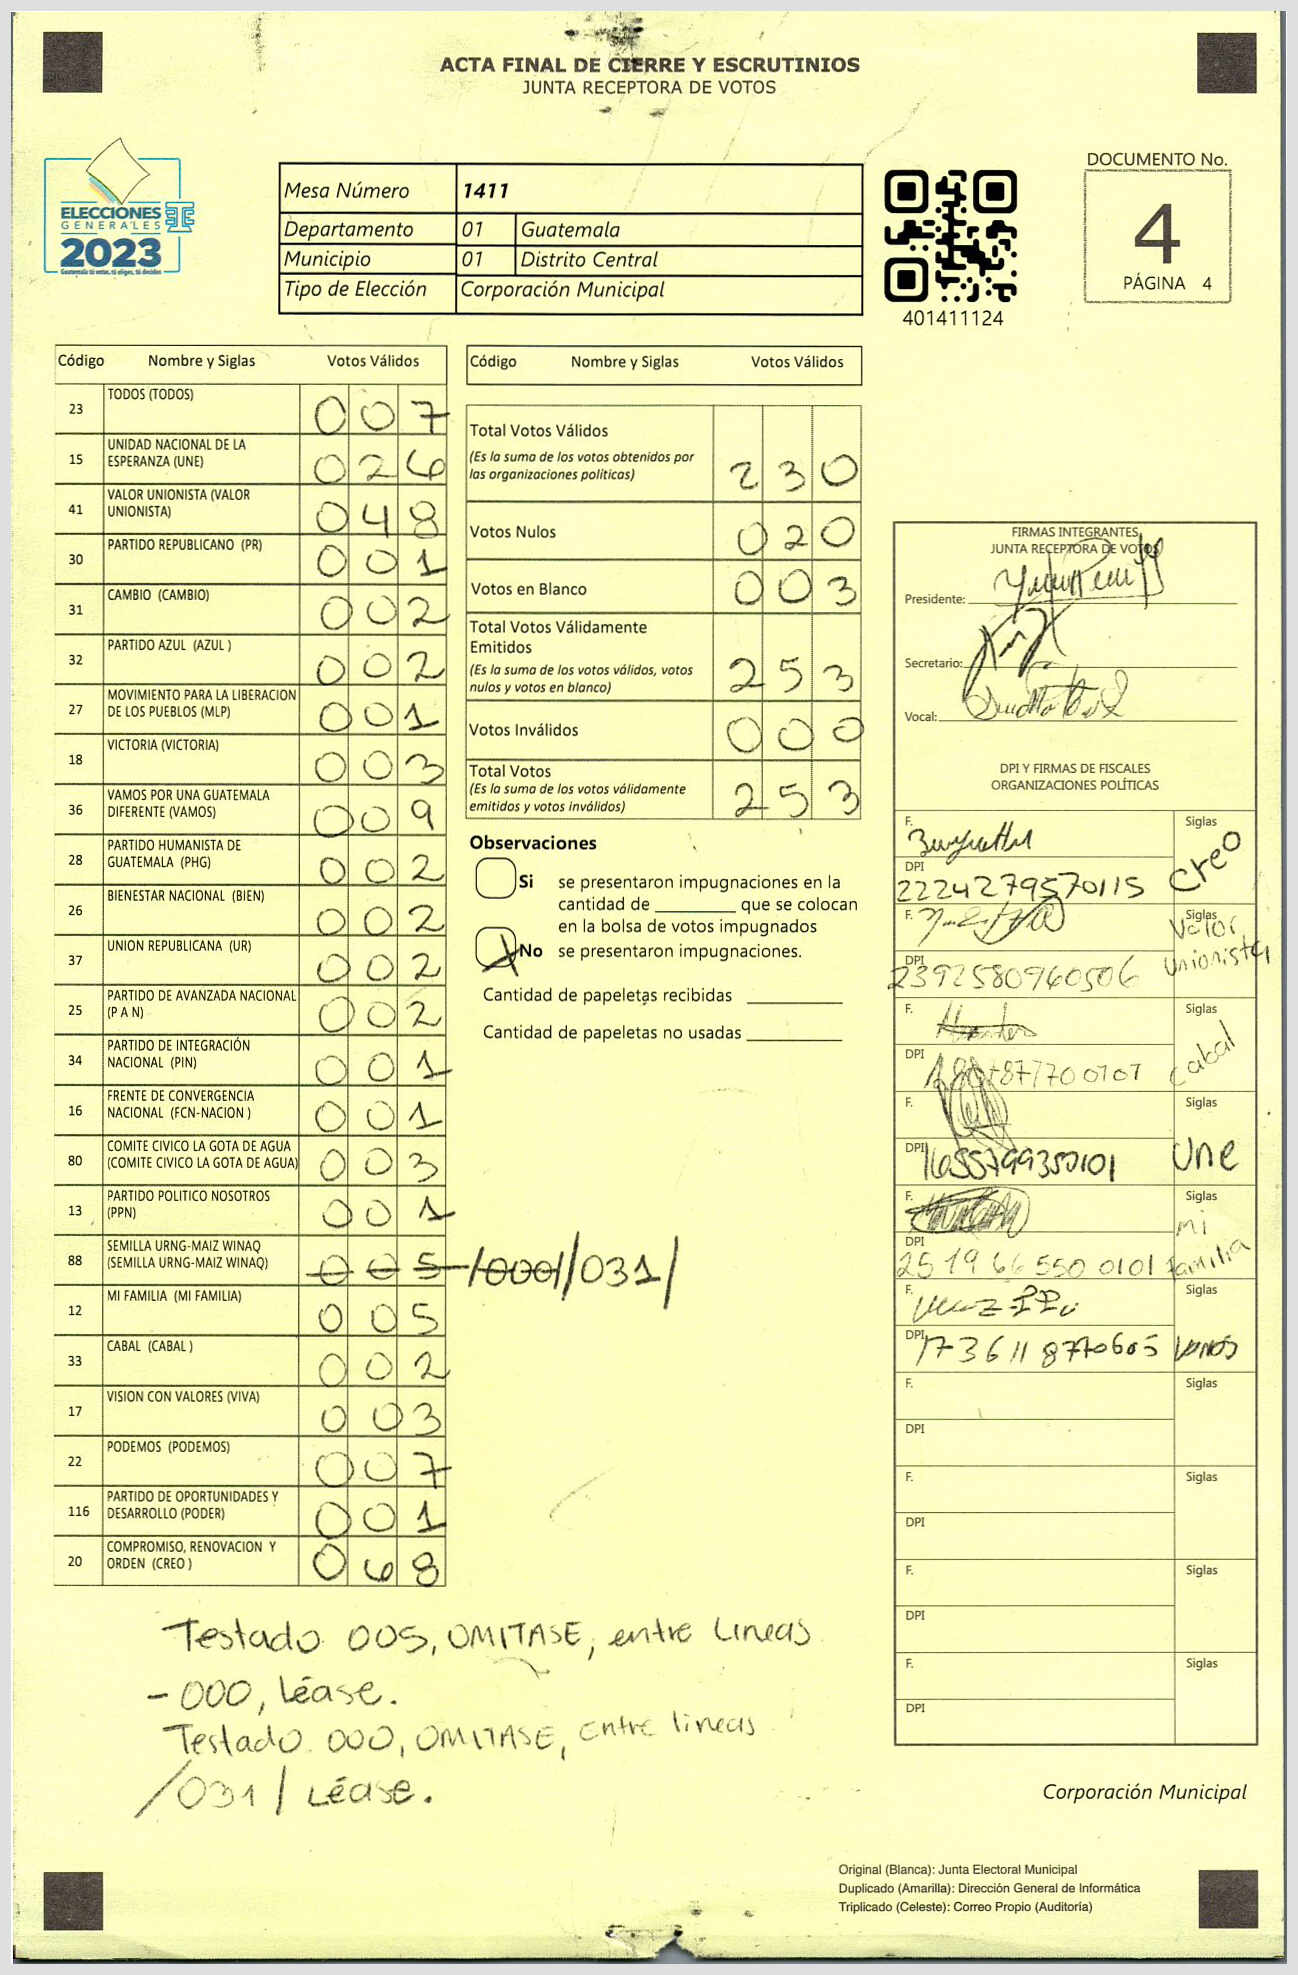 ACTA FINAL DE CIERRE Y ESCRUTINIOS
JUNTA RECEPTORA DE VOTOS
ELECCIONES
GENERALES
2023
Guatemala tú votas, tú eliges, tú decides
Mesa Número 1411
Departamento 01 Guatemala
Municipio 01 Distrito Central
Tipo de Elección Corporación Municipal
401411124
DOCUMENTO No.
4
PÁGINA 4
Código Nombre y Siglas Votos Válidos
23 TODOS (TODOS) 007
15 UNIDAD NACIONAL DE LA
ESPERANZA (UNE) 026
41 VALOR UNIONISTA (VALOR
UNIONISTA) 048
30 PARTIDO REPUBLICANO (PR) 001
31 CAMBIO (CAMBIO) 002
32 PARTIDO AZUL (AZUL ) 002
27 MOVIMIENTO PARA LA LIBERACION
DE LOS PUEBLOS (MLP) 001
18 VICTORIA (VICTORIA) 003
36 VAMOS POR UNA GUATEMALA
DIFERENTE (VAMOS) 009
28 PARTIDO HUMANISTA DE
GUATEMALA (PHG) 002
26 BIENESTAR NACIONAL (BIEN) 002
37 UNION REPUBLICANA (UR) 002
25 PARTIDO DE AVANZADA NACIONAL
(P A N) 002
34 PARTIDO DE INTEGRACIÓN
NACIONAL (PIN) 001
16 FRENTE DE CONVERGENCIA
NACIONAL (FCN-NACION ) 001
80 COMITE CIVICO LA GOTA DE AGUA
(COMITE CIVICO LA GOTA DE AGUA) 003
13 PARTIDO POLITICO NOSOTROS
(PPN) 001
88 SEMILLA URNG-MAIZ WINAQ
(SEMILLA URNG-MAIZ WINAQ) 005 /000//031/
12 MI FAMILIA (MI FAMILIA) 005
33 CABAL (CABAL ) 002
17 VISION CON VALORES (VIVA) 003
22 PODEMOS (PODEMOS) 007
116 PARTIDO DE OPORTUNIDADES Y
DESARROLLO (PODER) 001
20 COMPROMISO, RENOVACION Y
ORDEN (CREO ) 068
Código Nombre y Siglas Votos Válidos
Total Votos Válidos
(Es la suma de los votos obtenidos por
las organizaciones políticas) 230
Votos Nulos 020
Votos en Blanco 003
Total Votos Válidamente
Emitidos
(Es la suma de los votos válidos, votos
nulos y votos en blanco) 253
Votos Inválidos 000
Total Votos
(Es la suma de los votos válidamente
emitidos y votos inválidos) 253
Observaciones
Si se presentaron impugnaciones en la
cantidad de _________ que se colocan
en la bolsa de votos impugnados
No se presentaron impugnaciones.
Cantidad de papeletas recibidas ___________
Cantidad de papeletas no usadas ___________
FIRMAS INTEGRANTES
JUNTA RECEPTORA DE VOTOS
Presidente:
Secretario:
Vocal:
DPI Y FIRMAS DE FISCALES
ORGANIZACIONES POLÍTICAS
F. Siglas
DPI 2224279570115 Creo
F. Siglas
DPI 2392580960506 Valor Unionista
F. Siglas
DPI Cabal
F. Siglas
DPI 1655799350101 Une
F. Siglas
DPI 2519665500101 mi familia
F. Siglas
DPI 1736118770605 Vamos
F. Siglas
DPI
F. Siglas
DPI
F. Siglas
DPI
F. Siglas
DPI
Testado 005, OMITASE, entre Lineas
-000, Léase.
Testado 000, OMITASE, entre lineas
/031/ Léase.
Corporación Municipal
Original (Blanca): Junta Electoral Municipal
Duplicado (Amarilla): Dirección General de Informática
Triplicado (Celeste): Correo Propio (Auditoría)